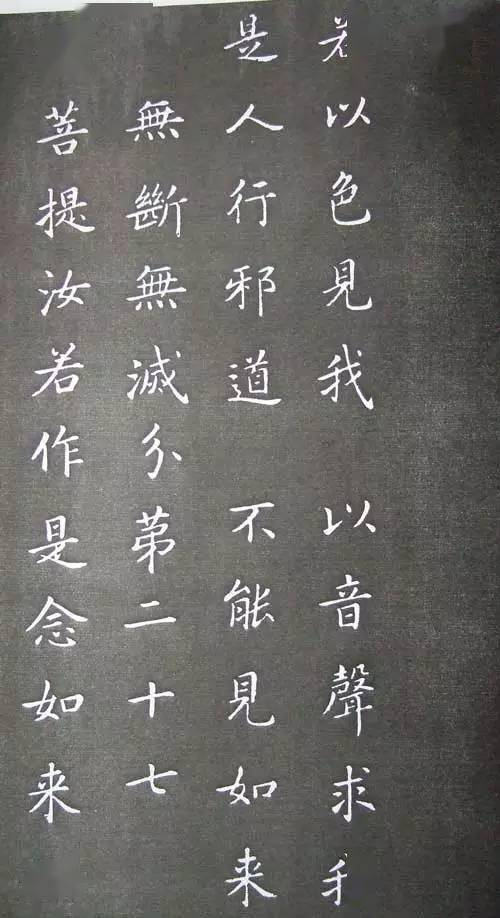 若以色見我 以音聲求我
是人行邪道 不能見如来
無斷無滅分第二十七
菩提汝若作是念如来